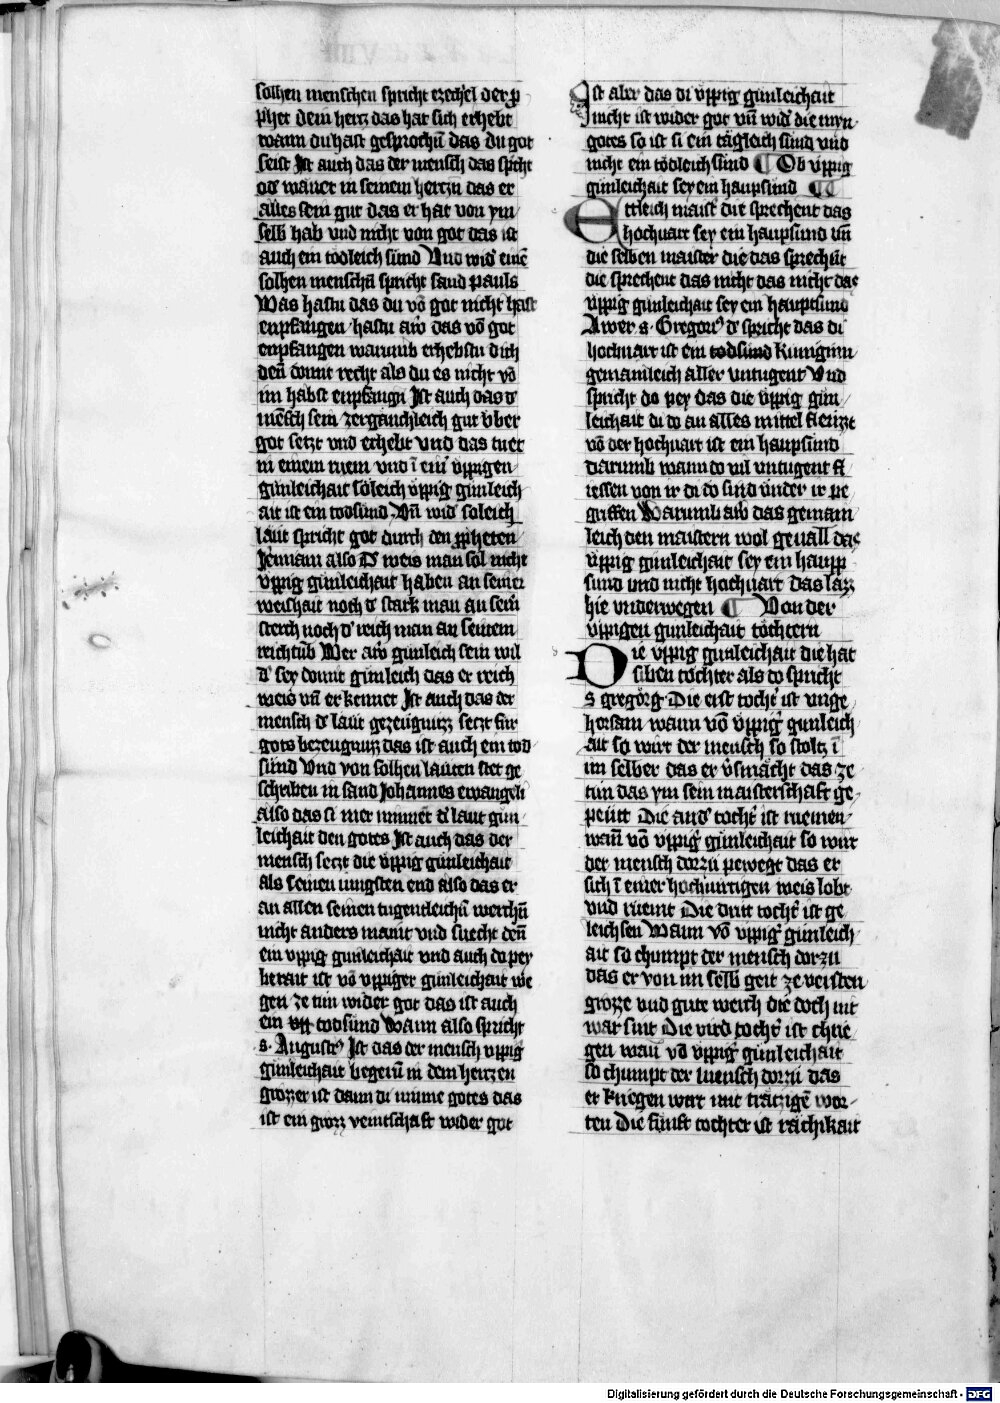 solhen menschen spricht ezechel der p̲
phet dem hertz das hat sich erhebt
wann du hast gesprochn̄ das du got
seist Ist auch das der mensch das spͥcht
od' wanet in seinem hertzn̄ das er
alles sein gut das er hat von ym
selb hab vnd nicht von got das ist
auch ein todleich sünd Vnd wid' einē
solhen menschn̄ spricht sand pauls
Was hastu das du vō got nicht hast
enpfangen / hastu aw̄ das vō got
enpfangen warumb erhebstu dich
den̄ donne recht als du es nicht vō
im habst enpfangn̄ Ist auch das d'
mēsch sein zergänchleich gut v̈ber
got setzt vnd erhebt vnd das tuet
in einem ruem vnd ī ein' v̈ppigen
günleichait söleich v̈ppig günleich
ait ist ein todsünd Vn̄ wid' soleich
läut spricht got durch den p̲pheten
Jeremiam also D' weis man sol nicht
v̈ppig günleichait haben an seiner
weishait noch d' stark man an sein'
sterch noch d' reich man an seinem
reichtūb Wer aw̄ günleich sein wil
d' sey donne günleich das er reich
weis vn̄ er kenner Ist auch das der
mensch d' läut gezeugnuzz setzt für
gots bezeugnuzz das ist auch ein tod
sünd Vnd von solhen läuten stet ge
schriben in sand Johannes ewangeli
also das si mer minnēt d' läut gün
leichait den gotes Ist auch das der
mensch setzt die v̈ppig günleichait
als seinen iungsten end also das er
an allen seinen tugentleichn̄ werchn̄
nicht anders maint vnd suecht den̄
ein v̈ppig günleichait vnd auch do pey
berait ist vō v̈ppiger günleichait we
gen ze tun wider got das ist auch
ein v̈pp todsünd Wann also spricht
s. August⁹ Ist das der mensch v̈ppig
günleichait begern̄ in dem hertzen
grozzer ist dann di minne gotes das
ist ein grozz veintschaft wider got
Ist aber das di v̈ppig günleichait
nicht ist wider got vn̄ wid' die myn
gotes so ist si ein tägleich sünd vnd
nicht ein tödleich sünd ¶ Ob v̈ppig
günleichait sey ein haupsünd ¶¶
Ettleich maist' die sprechent das
hochuart sey ein haupsünd vn̄
die selben maister die das sprechn̄t
die sprechent das nicht das nicht das
v̈ppig günleichait sey ein hauptsünd
Awer s. Gregori⁹ d' spricht das di
hochuart ist ein todsünd kuniginn
gemainleich aller vntugent Vnd
spricht do pey das die v̈ppig gün
leichait di do an alles mittel fleuzzt
vō der hochuart ist ein haupsünd
darumb wann do vil vntugent fl
iessen von ir di do sind vnder ir pe
griffen Warumb aw̄ das gemain
leich den maistern wol geuall das
v̈ppig günleichait sey ein haupp
sund vnd nicht hochuart das laz
hie vnderwegen ¶ Von der
v̈ppigen günleichait töchtern
Die v̈ppig günleichait die hat
siben töchter als do spricht
s gregorg Die erst tocht' ist vnge
horsam wann vō v̈ppig' günleich
ait so wirt der mensch so stoltz ī
im selber das er v'smächt das ze
tun das ym sein maisterschaft ge
peütt Die and' tocht' ist ruemen
wan̄ vō v̈ppig' günleichait so wirt
der mensch dorzu pewegt das er
sich ī einer hochuertigen weis lobt
vnd rüemt Die dritt tocht' ist ge
leichsen Wann vō v̈ppig' günleich
ait so chumpt der mensch dorzu
das er von im selb geit ze versten
grozze vnd gute werch die doch nit
war sint Die vird tocht' ist chrie
gen wan̄ vō v̈ppig' günleichait
so chumpt der mensch dorzu das
er kriegen wirt mit trätzigē wor
ten Die fünft tochter ist rächikait
Digitalisierung gefördert durch die Deutsche Forschungsgemeinschaft - DFG